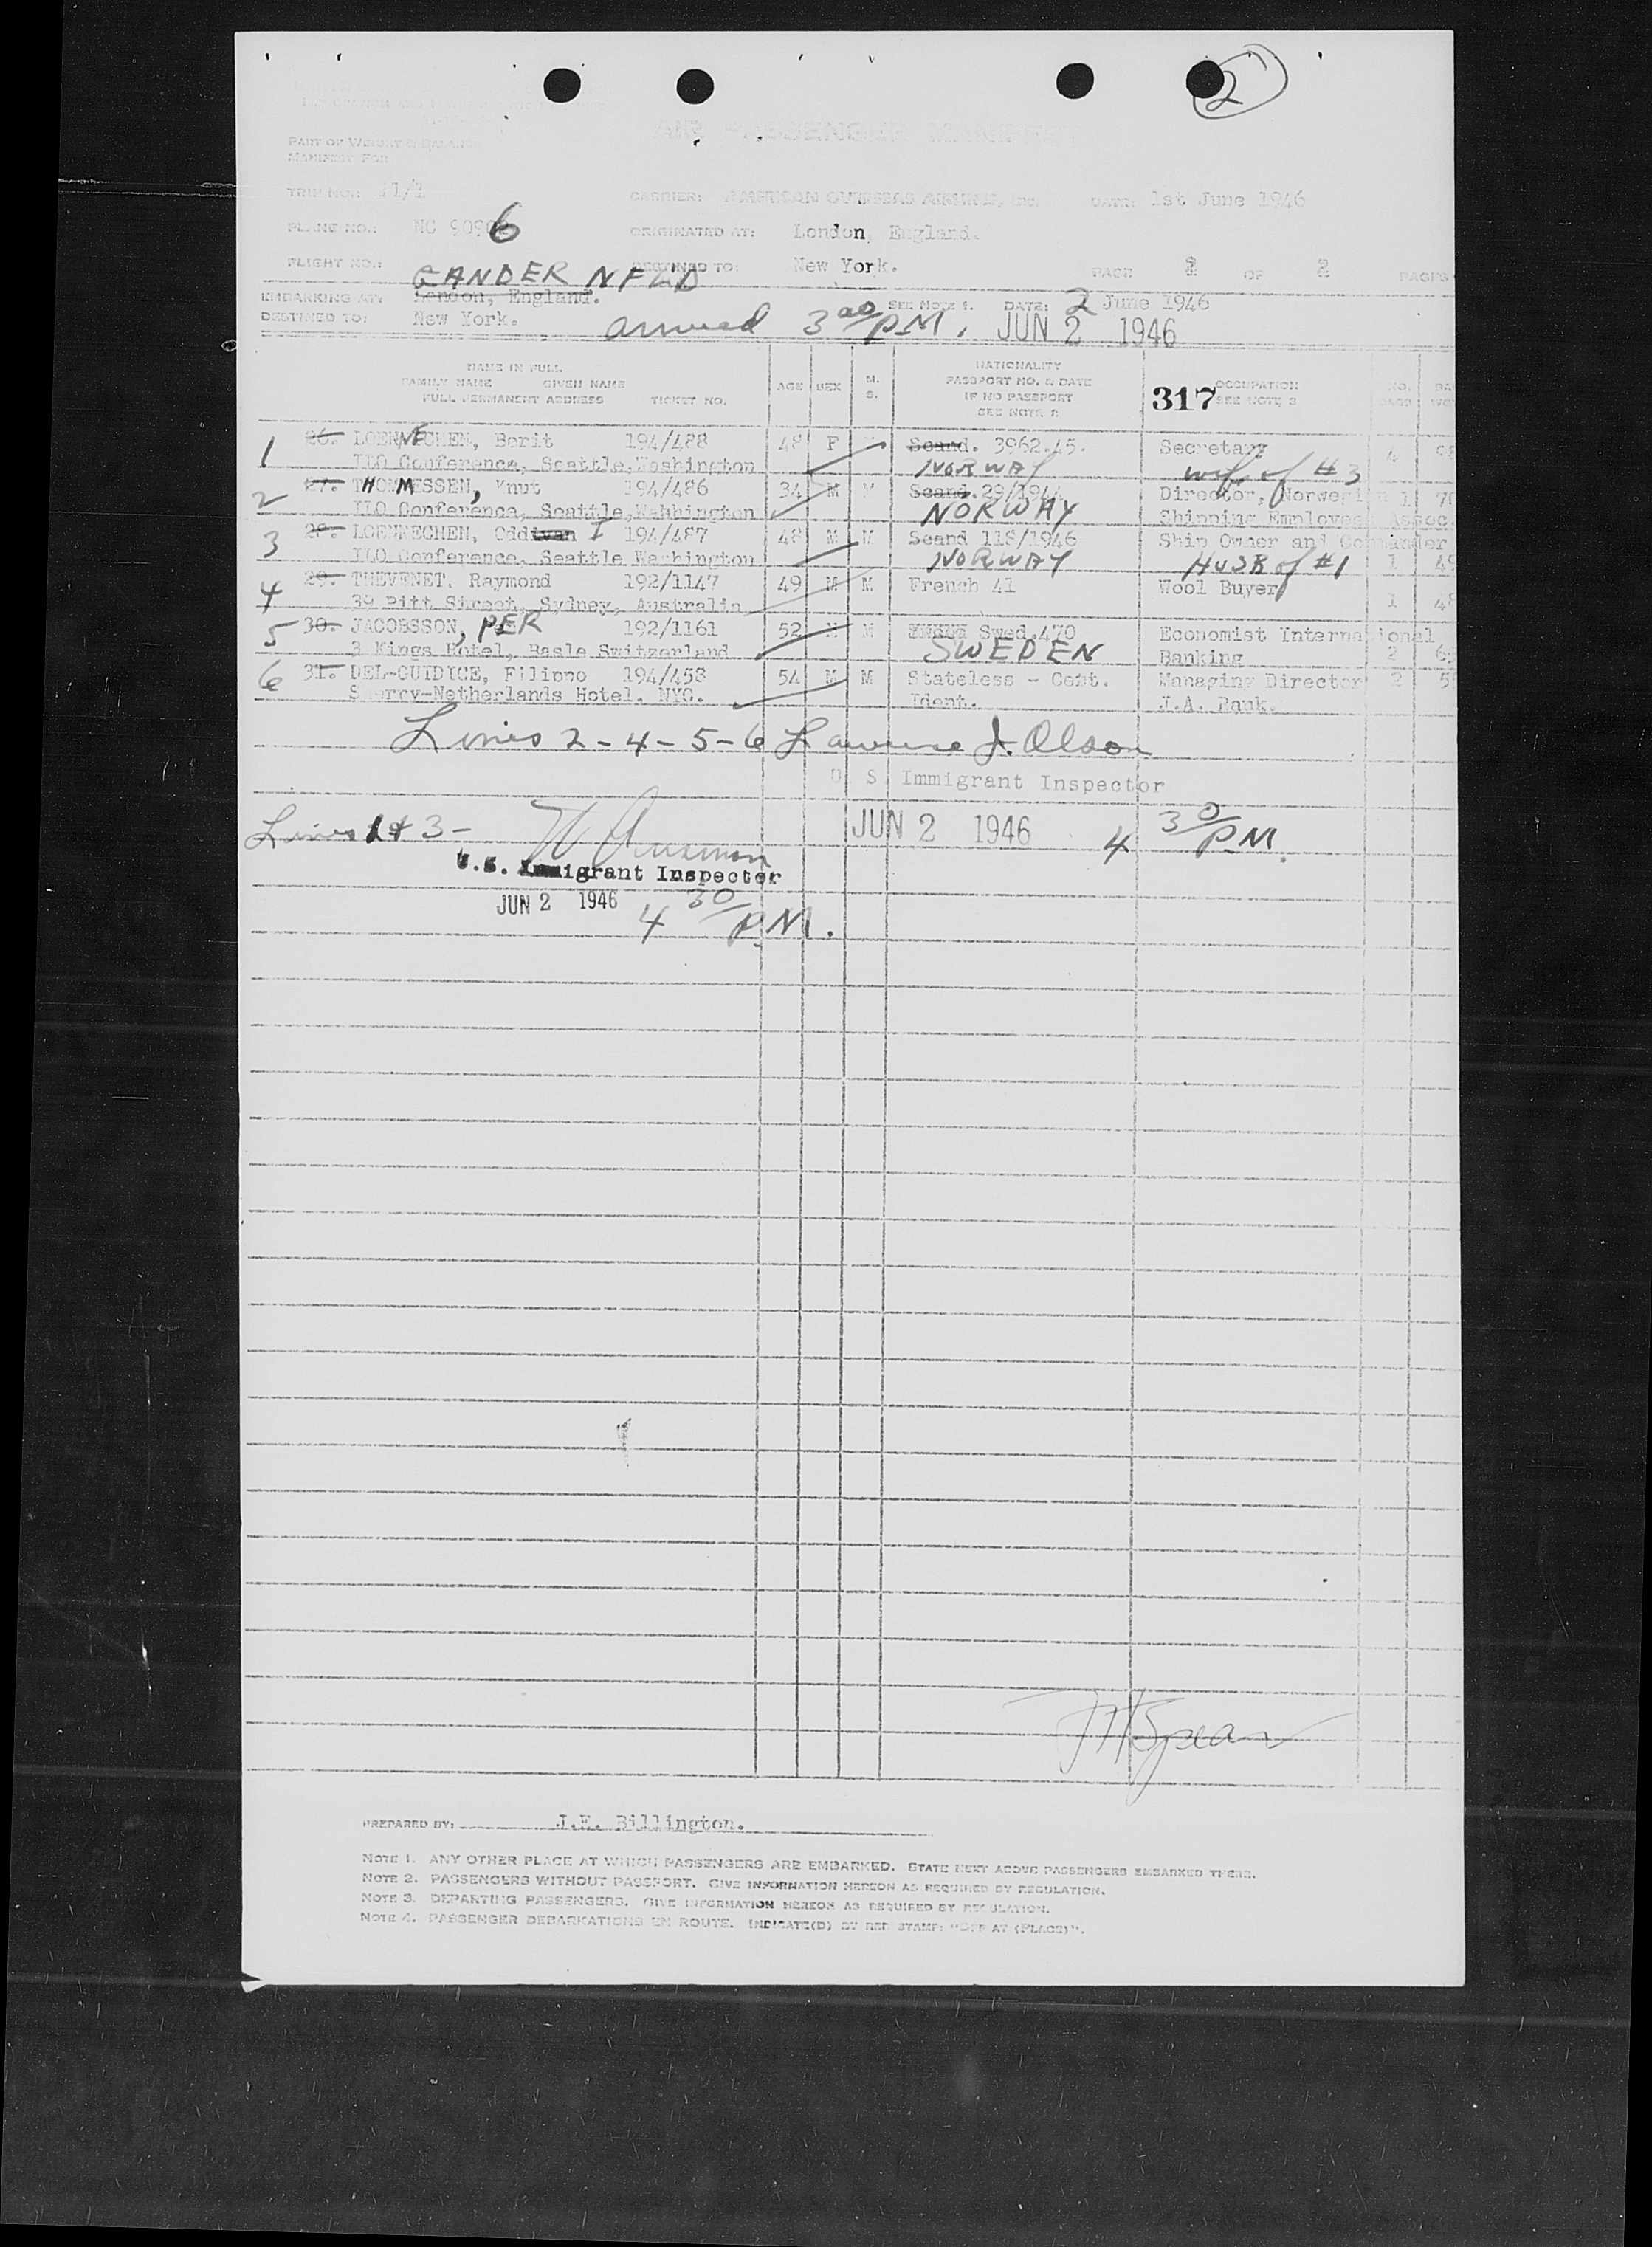 2
AIR PASSENGER MANIFEST
PART OF WEIGHT & BALANCE
MANIFEST FOR
TRIP NO.: 11/1 CARRIER: AMERICAN OVERSEAS AIRLINES, INC. DATE: 1st June 1946
PLANE NO.: NC 90906 ORIGINATED AT: London, England.
FLIGHT NO.: DESTINED TO: New York. PAGE 2 OF 2 PAGES
GANDER NFLD
EMBARKING AT: London, England. SEE NOTE 1. DATE: 2 June 1946
DESTINED TO: New York. arrived 3 00/PM. JUN 2 1946
NAME IN FULL
FAMILY NAME GIVEN NAME
FULL PERMANENT ADDRESS TICKET NO.
AGE SEX M. S.
NATIONALITY
PASSPORT NO. & DATE
IF NO PASSPORT
SEE NOTE 2
317 OCCUPATION
SEE NOTE 3
NO.
1 26. LOENNECHEN, Berit 194/488 48 F Scand. 3962.45. Secretary 4
ILO Conference, Seattle, Washington NORWAY wife of #3
2 27. THOMMESSEN, Knut 194/486 34 M M Scand. 29/1944 Director, Norwegian 1
ILO Conference, Seattle, Washington NORWAY Shipping Employes Assoc.
3 28. LOENNECHEN, Oddivar I 194/487 48 M M Scand 118/1946 Ship Owner and Commander
ILO Conference, Seattle Washington NORWAY HUSB of #1 1
4 29. THEVENET, Raymond 192/1147 49 M M French 41 Wool Buyer
39 Pitt Street, Sydney, Australia 1
5 30. JACOBSSON, PER 192/1161 52 M M Swed. 470 Economist International
3 Kings Hotel, Basle Switzerland SWEDEN Banking 2
6 31. DEL-GUIDICE, Filippo 194/458 54 M M Stateless - Cert. Managing Director 2
Sherry-Netherlands Hotel. NYC. Ident. J.A. Rank.
Lines 2-4-5-6 Lawrence J. Olson
U S Immigrant Inspector
Lines 1 & 3 - JUN 2 1946 4 30/PM.
U.S. Immigrant Inspector
JUN 2 1946 4 30/P.M.
PREPARED BY: J.E. Billington.
NOTE 1. ANY OTHER PLACE AT WHICH PASSENGERS ARE EMBARKED. STATE NEXT ABOVE PASSENGERS EMBARKED THERE.
NOTE 2. PASSENGERS WITHOUT PASSPORT. GIVE INFORMATION HEREON AS REQUIRED BY REGULATION.
NOTE 3. DEPARTING PASSENGERS. GIVE INFORMATION HEREON AS REQUIRED BY REGULATION.
NOTE 4. PASSENGER DEBARKATIONS EN ROUTE. INDICATE(D) BY REF STAMP: "OFF AT (PLACE)".